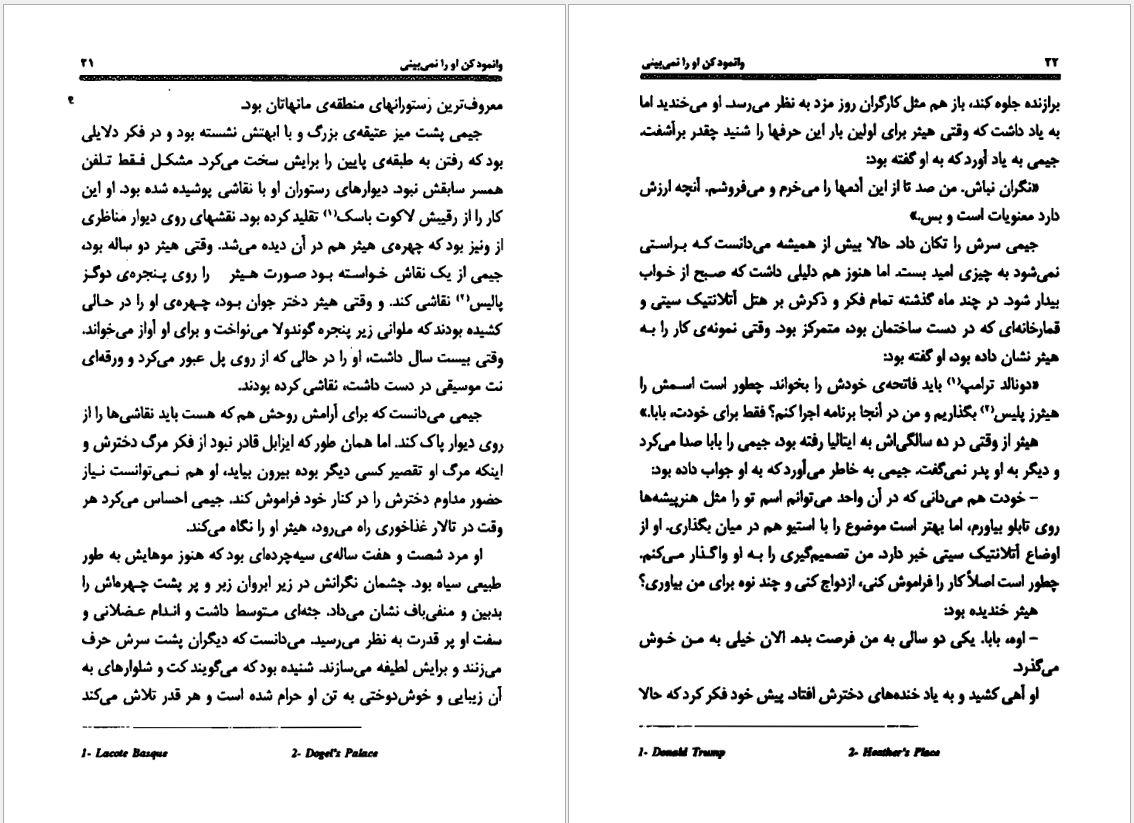 وانمود کن او را نمی‌بینی ۲۱
معروف‌ترین رستورانهای منطقه‌ی مانهاتان بود.
جیمی پشت میز عتیقه‌ی بزرگ و با ابهتش نشسته بود و در فکر دلایلی
بود که رفتن به طبقه‌ی پایین را برایش سخت می‌کرد. مشکل فقط تلفن
همسر سابقش نبود. دیوارهای رستوران او با نقاشی پوشیده شده بود. او این
کار را از رقیبش لاکوت باسک(۱) تقلید کرده بود. نقشهای روی دیوار مناظری
از ونیز بود که چهره‌ی هیثر هم در آن دیده می‌شد. وقتی هیثر دو ساله بود،
جیمی از یک نقاش خواسته بود صورت هیثر را روی پنجره‌ی دوگز
پالیس(۲) نقاشی کند. و وقتی هیثر دختر جوان بود، چهره‌ی او را در حالی
کشیده بودند که ملوانی زیر پنجره گوندولا می‌نواخت و برای او آواز می‌خواند.
وقتی بیست سال داشت، او را در حالی که از روی پل عبور می‌کرد و ورقه‌ای
نت موسیقی در دست داشت، نقاشی کرده بودند.
جیمی می‌دانست که برای آرامش روحش هم که هست باید نقاشی‌ها را از
روی دیوار پاک کند. اما همان طور که ایزابل قادر نبود از فکر مرگ دخترش و
اینکه مرگ او تقصیر کسی دیگر بوده بیرون بیاید، او هم نمی‌توانست نیاز
حضور مداوم دخترش را در کنار خود فراموش کند. جیمی احساس می‌کرد هر
وقت در تالار غذاخوری راه می‌رود، هیثر او را نگاه می‌کند.
او مرد شصت و هفت ساله‌ی سیه‌چرده‌ای بود که هنوز موهایش به طور
طبیعی سیاه بود. چشمان نگرانش در زیر ابروان زبر و پر پشت چهره‌اش را
بدبین و منفی‌باف نشان می‌داد. جثه‌ای متوسط داشت و اندام عضلانی و
سفت او پر قدرت به نظر می‌رسید. می‌دانست که دیگران پشت سرش حرف
می‌زنند و برایش لطیفه می‌سازند. شنیده بود که می‌گویند کت و شلوارهای به
آن زیبایی و خوش‌دوختی به تن او حرام شده است و هر قدر تلاش می‌کند
1- Lacote Basque 2- Dogel's Palace
۲۲ وانمود کن او را نمی‌بینی
برازنده جلوه کند، باز هم مثل کارگران روز مزد به نظر می‌رسد. او می‌خندید اما
به یاد داشت که وقتی هیثر برای اولین بار این حرفها را شنید چقدر برآشفت.
جیمی به یاد آورد که به او گفته بود:
«نگران نباش. من صد تا از این آدمها را می‌خرم و می‌فروشم. آنچه ارزش
دارد معنویات است و بس.»
جیمی سرش را تکان داد. حالا بیش از همیشه می‌دانست که براستی
نمی‌شود به چیزی امید بست. اما هنوز هم دلیلی داشت که صبح از خواب
بیدار شود. در چند ماه گذشته تمام فکر و ذکرش بر هتل آتلانتیک سیتی و
قمارخانه‌ای که در دست ساختمان بود، متمرکز بود. وقتی نمونه‌ی کار را به
هیثر نشان داده بود، او گفته بود:
«دونالد ترامپ(۱) باید فاتحه‌ی خودش را بخواند. چطور است اسمش را
هیثرز پلیس(۲) بگذاریم و من در آنجا برنامه اجرا کنم؟ فقط برای خودت، بابا.»
هیثر از وقتی در ده سالگی‌اش به ایتالیا رفته بود، جیمی را بابا صدا می‌کرد
و دیگر به او پدر نمی‌گفت. جیمی به خاطر می‌آورد که به او جواب داده بود:
– خودت هم می‌دانی که در آن واحد می‌توانم اسم تو را مثل هنرپیشه‌ها
روی تابلو بیاورم، اما بهتر است موضوع را با استیو هم در میان بگذاری. او از
اوضاع آتلانتیک سیتی خبر دارد. من تصمیم‌گیری را به او واگذار می‌کنم.
چطور است اصلاً کار را فراموش کنی، ازدواج کنی و چند نوه برای من بیاوری؟
هیثر خندیده بود:
– اوه، بابا. یکی دو سالی به من فرصت بده. الان خیلی به من خوش
می‌گذرد.
او آهی کشید و به یاد خنده‌های دخترش افتاد. پیش خود فکر کرد که حالا
1- Donald Trump 2- Heather's Place